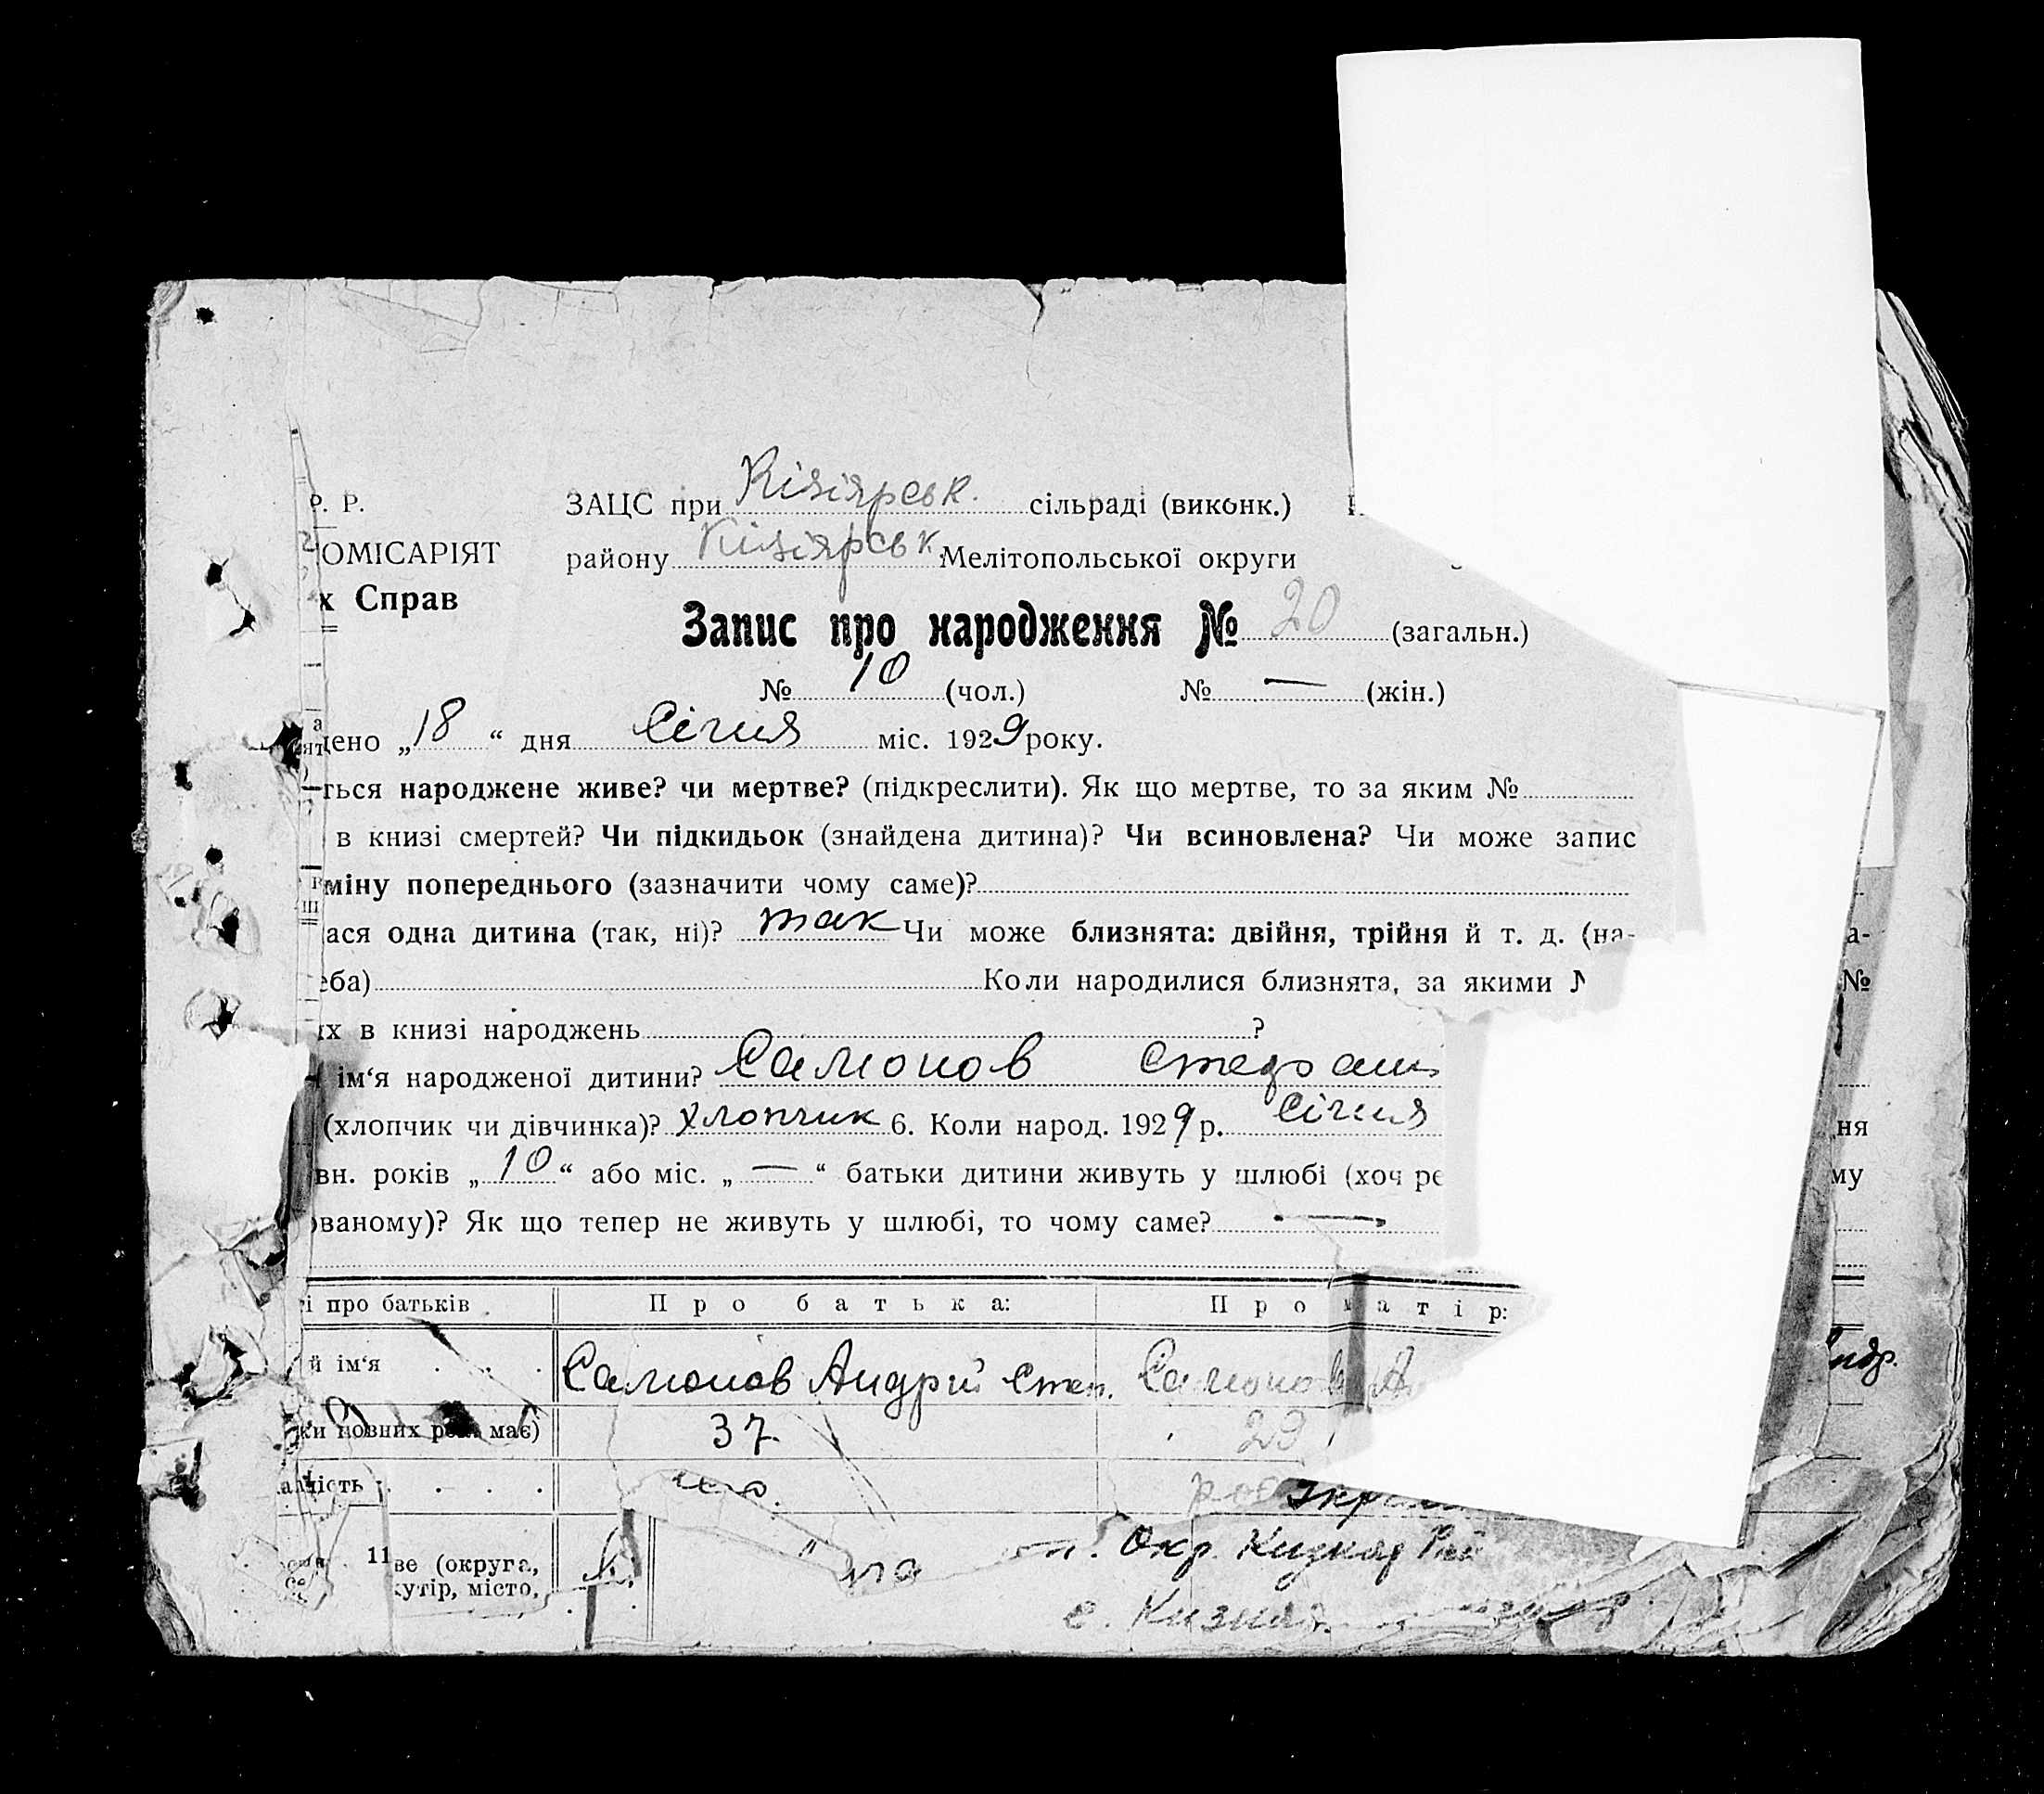 Р. Р. ЗАЦС при Кізіярськ. сільраді (виконк.)
ОМІСАРІЯТ району Кізіярськ. Мелітопольської округи
х Справ
Запис про народження № 20 (загальн.)
№ 10 (чол.) № — (жін.)
дено „18“ дня Січня міс. 1929 року.
ться народжене живе? чи мертве? (підкреслити). Як що мертве, то за яким №
в книзі смертей? Чи підкидьок (знайдена дитина)? Чи всиновлена? Чи може запис
міну попереднього (зазначити чому саме)?
ася одна дитина (так, ні)? так Чи може близнята: двійня, трійня й т. д. (на- а-
еба) Коли народилися близнята, за якими №
их в книзі народжень ?
ім‘я народженої дитини? Самонов Стефан
(хлопчик чи дівчинка)? хлопчик 6. Коли народ. 1929 р. Січня ня
вн. років „10“ або міс. „—“ батьки дитини живуть у шлюбі (хоч ре му
ованому)? Як що тепер не живуть у шлюбі, то чому саме? —
і про батьків Про батька: Про матір:
й ім‘я Самонов Андрій Степ. Самонов А
ки повних рок. має) 37 29
ість рос
11 ве (округа, Окр.
хутір, місто, с.